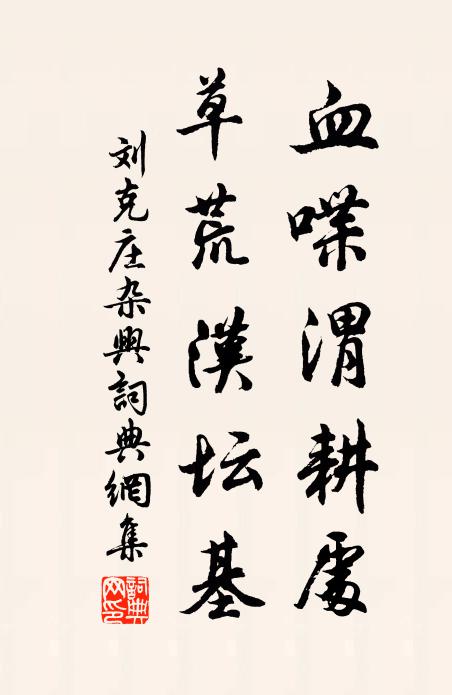 血喋渭耕處
草荒漢坛基
刘克庄杂興詞典網集
詞典网印